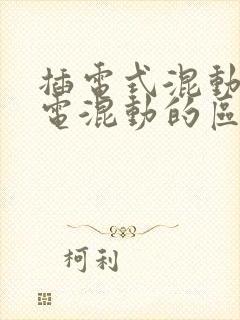 插電式混動
電混動的區
柯利